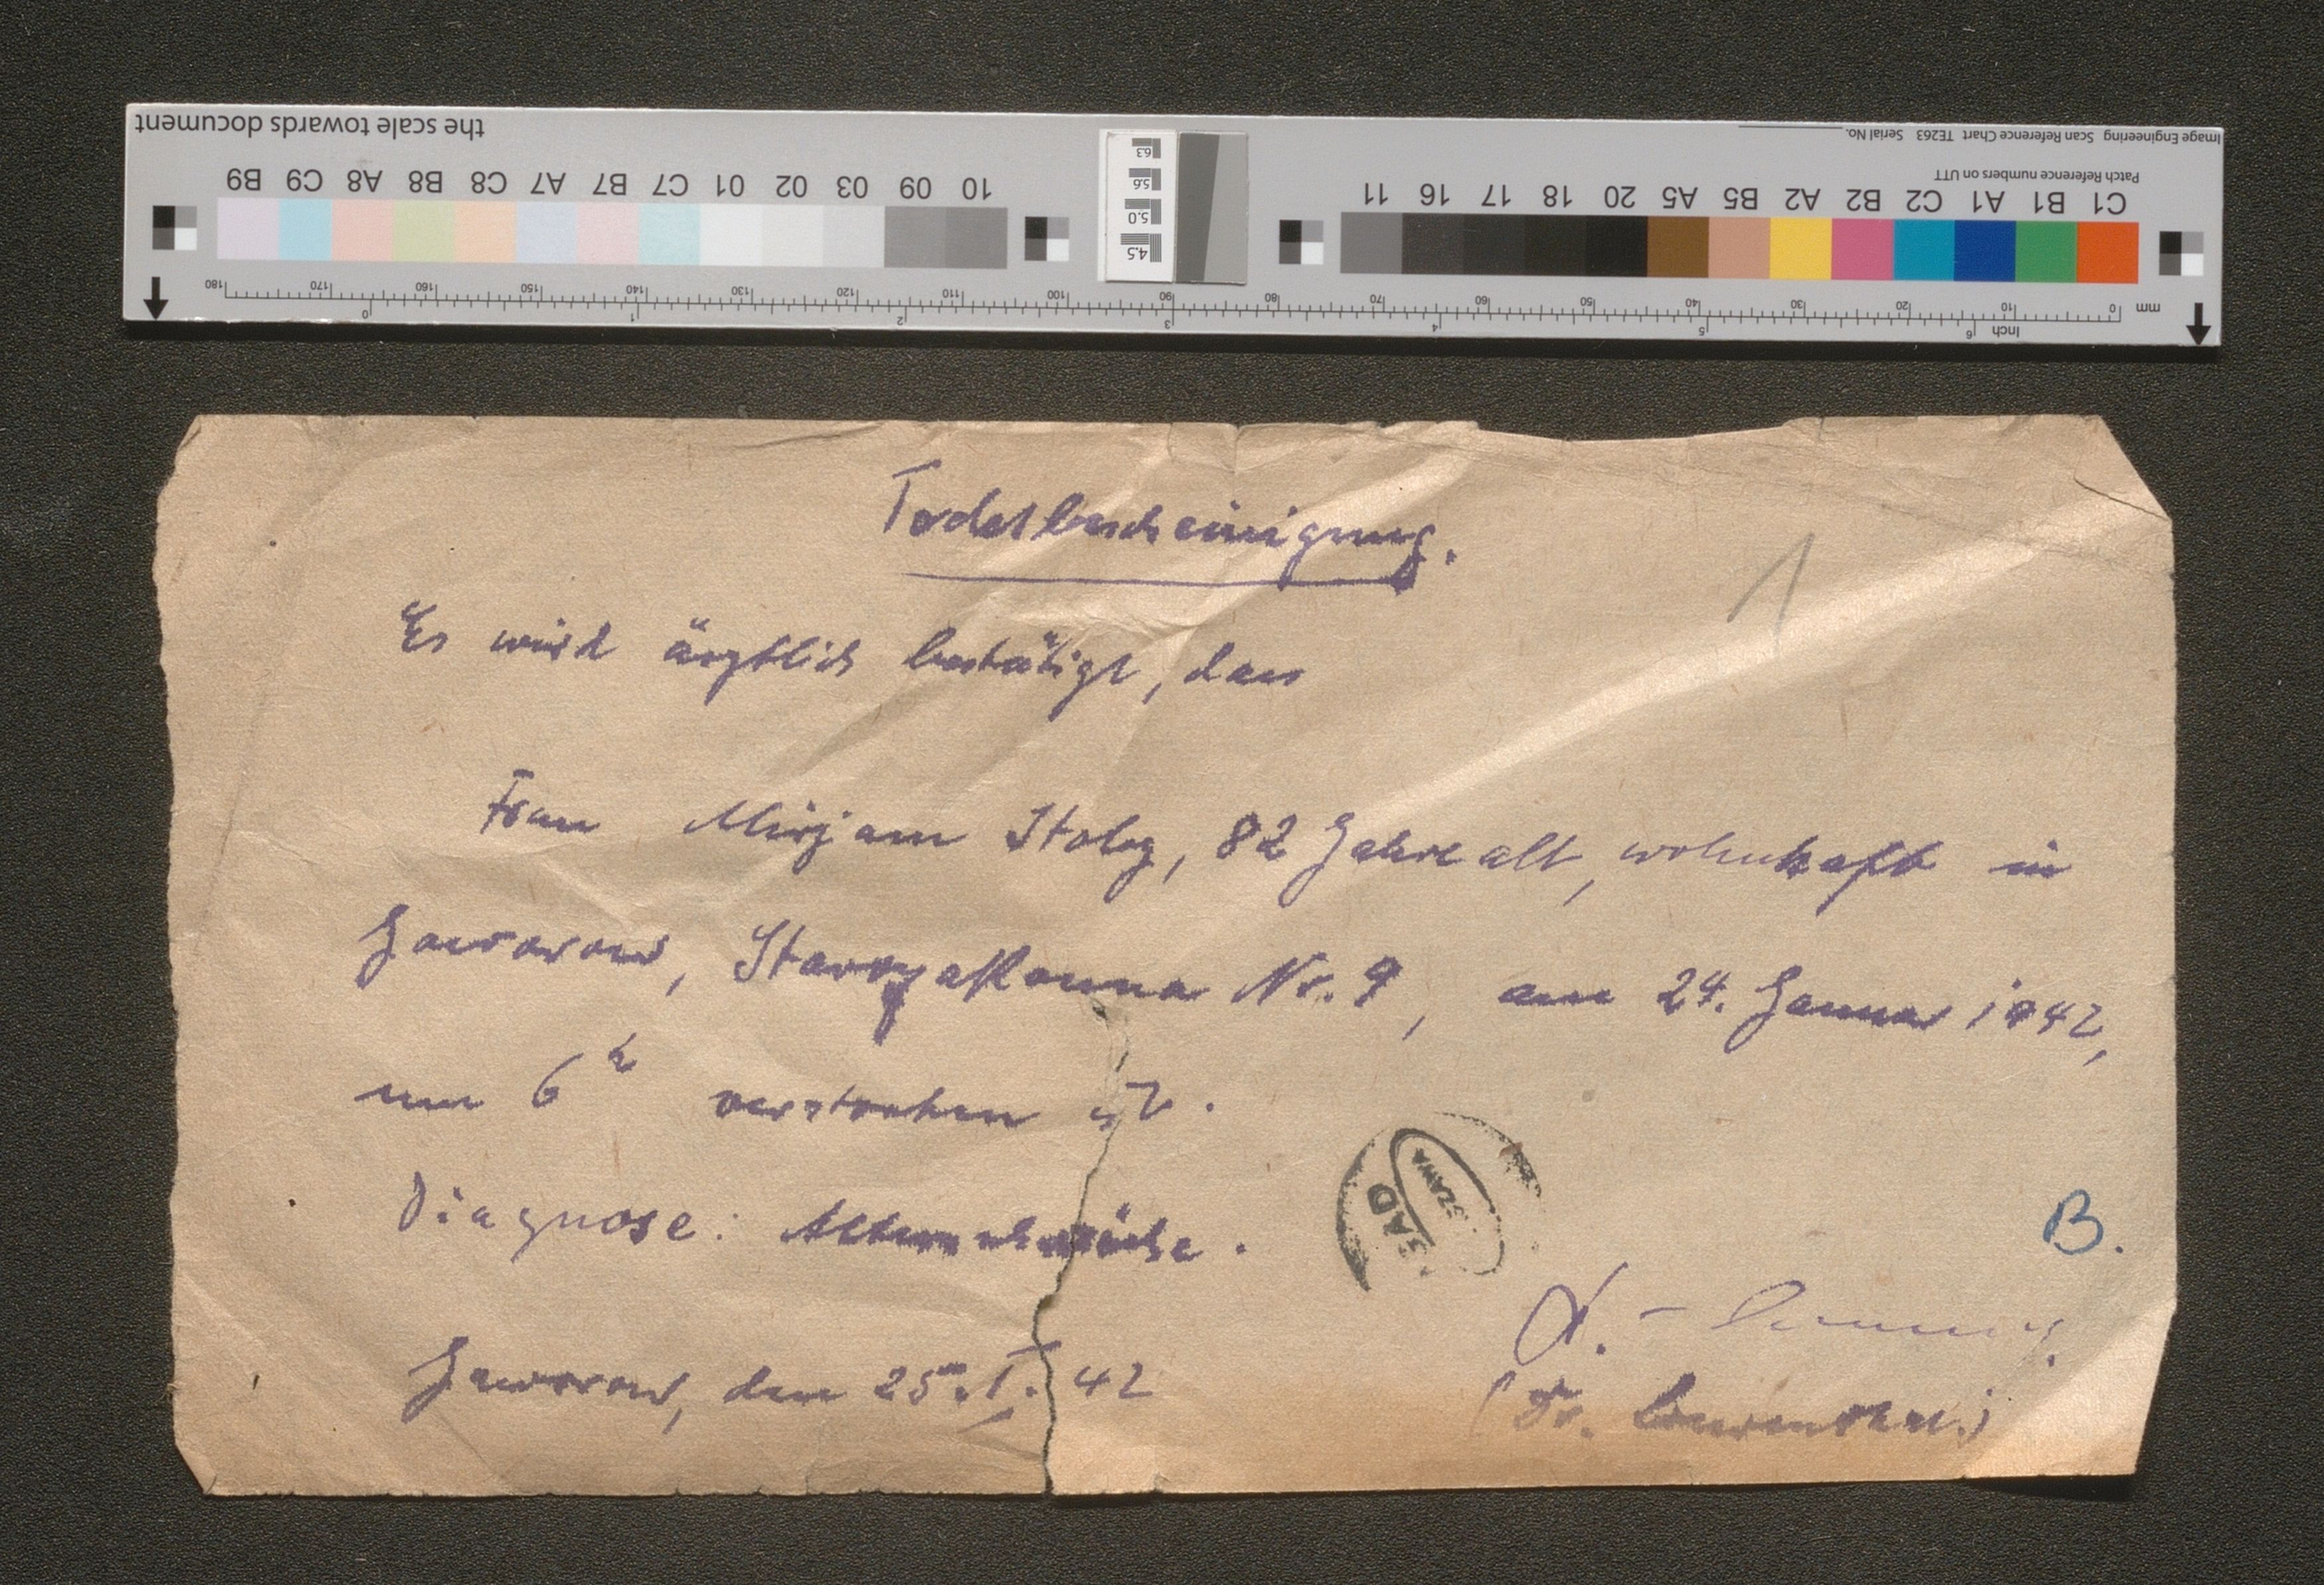 the scale towards document
Image Engineering Scan Reference Chart TE263 Serial No.
Patch Reference numbers on UTT
B9 C9 A8 B8 C8 A7 B7 C7 01 02 03 09 10
11 16 17 18 20 A5 B5 A2 B2 C2 A1 B1 C1
6.3
5.6
5.0
4.5
180 170 160 150 140 130 120 110 100 90 80 70 60 50 40 30 20 10 0 mm
0 1 2 3 4 5 6 Inch
Todesbescheinigung.
1
Es wird ärztlich bestätigt, dass
Frau Mirjam Stolz, 82 Jahre alt, wohnhaft in
Jaworow, Nr. 9, am 24. Januar 1942,
um 6 h verstorben ist.
Diagnose: Altersschwäche.
SĄD
B.
Jaworow, den 25. I. 42
(Dr. )